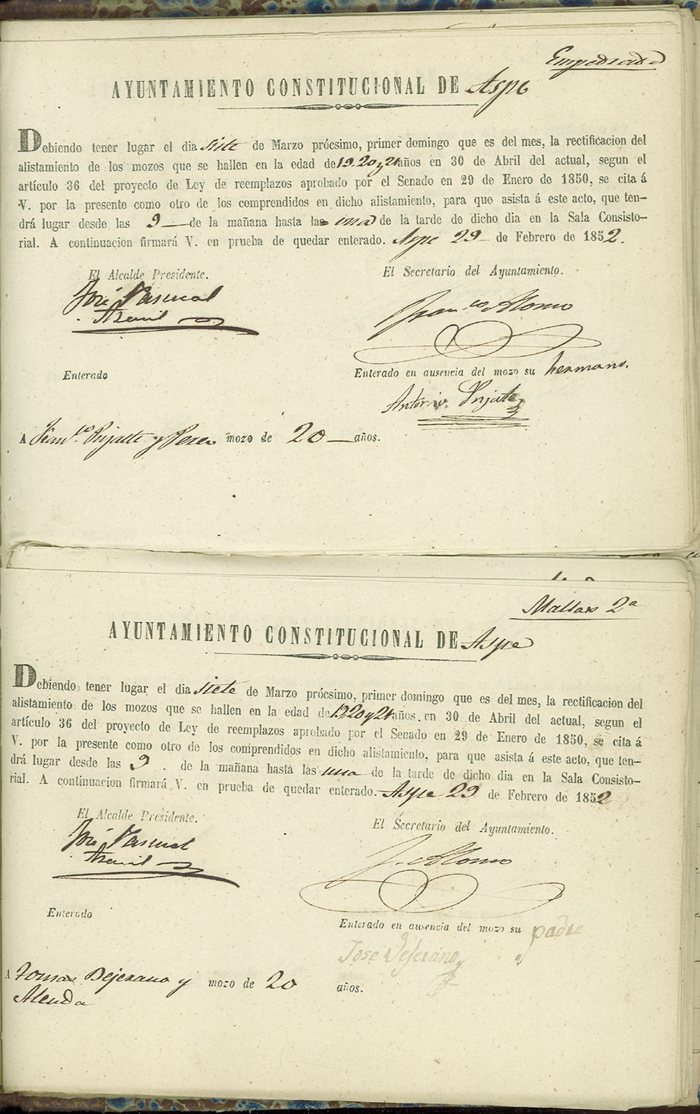 Empedrado
AYUNTAMIENTO CONSTITUCIONAL DE Aspe
Debiendo tener lugar el dia siete de Marzo prócsimo, primer domingo que es del mes, la rectificacion del
alistamiento de los mozos que se hallen en la edad de 19. 20 y 21 años en 30 de Abril del actual, segun el
artículo 36 del proyecto de Ley de reemplazos aprobado por el Senado en 29 de Enero de 1850, se cita á
V. por la presente como otro de los comprendidos en dicho alistamiento, para que asista á este acto, que ten-
drá lugar desde las 9 de la mañana hasta las una de la tarde de dicho dia en la Sala Consisto-
rial. A continuacion firmará V. en prueba de quedar enterado. Aspe 29 de Febrero de 1852.
El Alcalde Presidente. El Secretario del Ayuntamiento.
José Pascual Franco Alonso
Enterado Enterado en ausencia del mozo su hermano.
Antonio
A mozo de 20 años.
2a
AYUNTAMIENTO CONSTITUCIONAL DE Aspe
Debiendo tener lugar el dia siete de Marzo prócsimo, primer domingo que es del mes, la rectificacion del
alistamiento de los mozos que se hallen en la edad de 19 20 y 21 años. en 30 de Abril del actual, segun el
artículo 36 del proyecto de Ley de reemplazos aprobado por el Senado en 29 de Enero de 1850, se cita á
V. por la presente como otro de los comprendidos en dicho alistamiento, para que asista á este acto, que ten-
drá lugar desde las 9. de la mañana hasta las una de la tarde de dicho dia en la Sala Consisto-
rial. A continuacion firmará V. en prueba de quedar enterado. Aspe 29 de Febrero de 1852
El Alcalde Presidente. El Secretario del Ayuntamiento.
José Pascual Alonso
Enterado Enterado en ausencia del mozo su padre
Jose
A Tomas Dejerano y mozo de 20 años.
Alenda